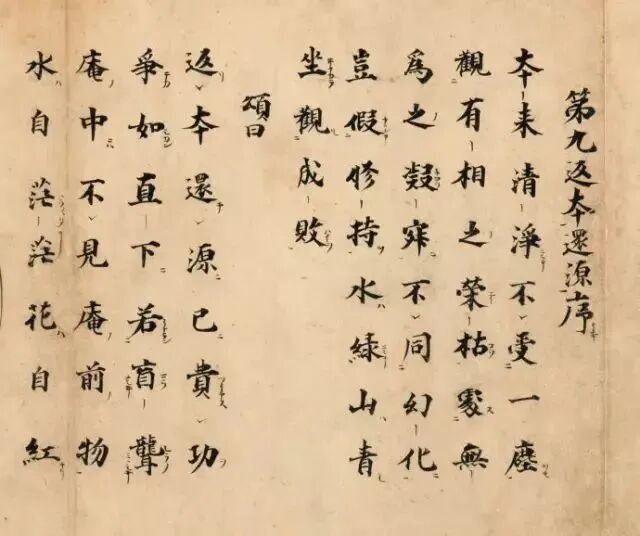 第九返本還源序
本来清淨不受一塵
觀有相之榮枯處無
為之凝寂不同幻化
豈假修持水緑山青
坐觀成敗
頌曰
返本還源已費功
爭如直下若盲聾
庵中不見庵前物
水自茫茫花自紅